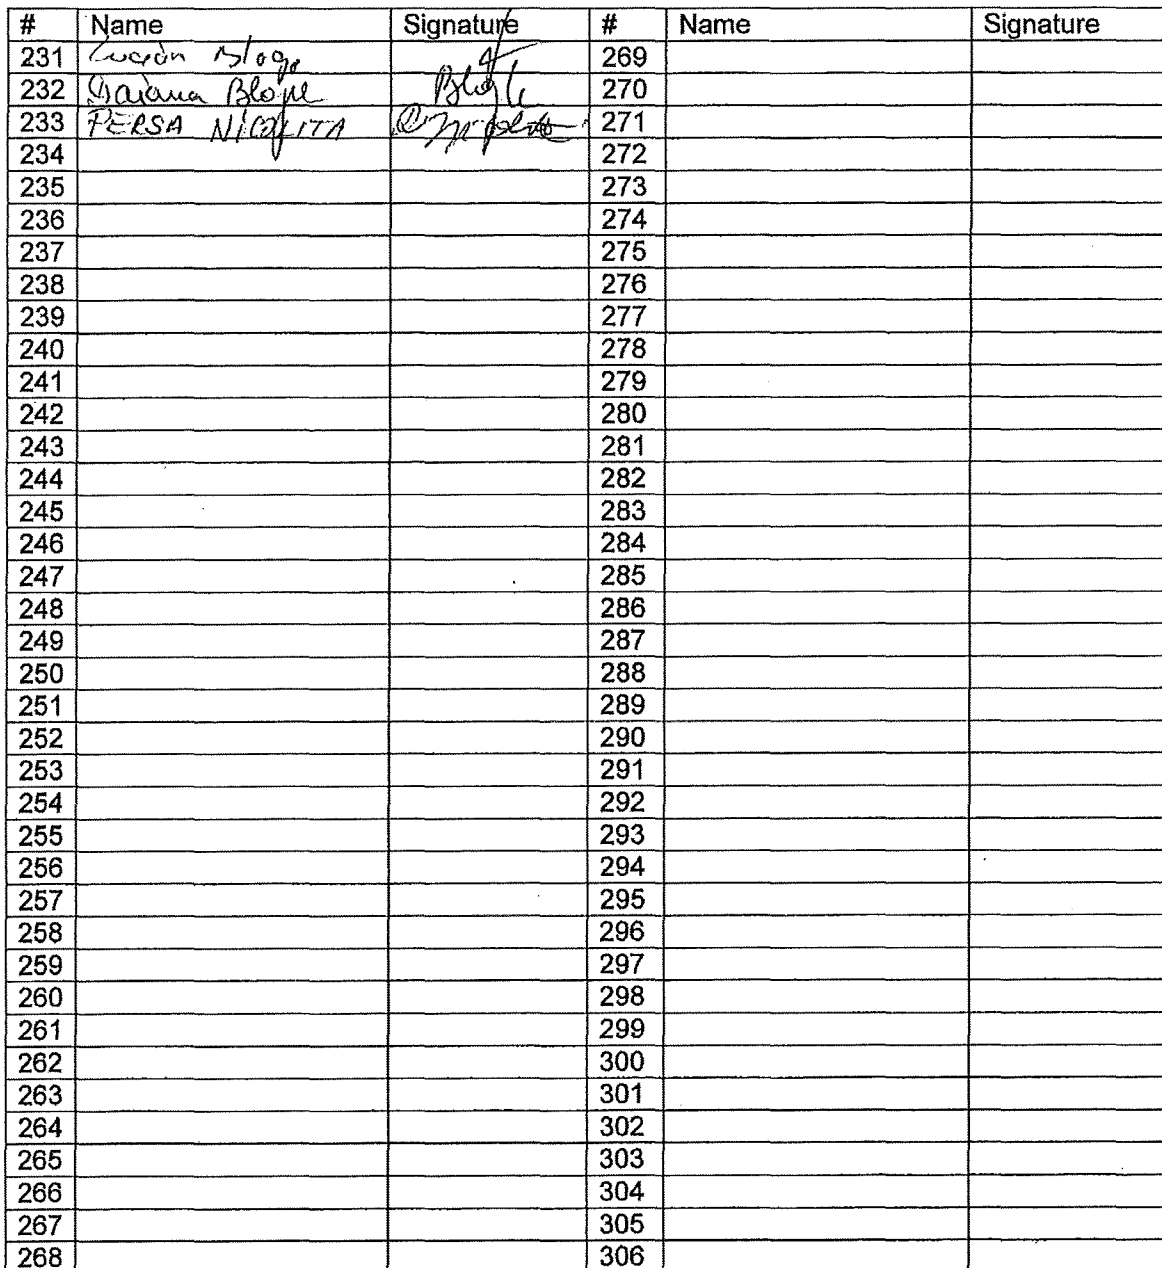 # Name Signature # Name Signature
231 Lucian Blaga 269
232 Daiana 270
233 PERSA NICOLITA 271
234 272
235 273
236 274
237 275
238 276
239 277
240 278
241 279
242 280
243 281
244 282
245 283
246 284
247 285
248 286
249 287
250 288
251 289
252 290
253 291
254 292
255 293
256 294
257 295
258 296
259 297
260 298
261 299
262 300
263 301
264 302
265 303
266 304
267 305
268 306